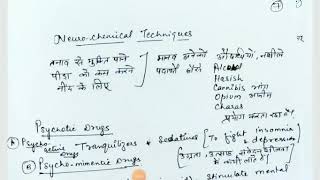 Neuro-chemical Techniques
तनाव से मुक्ति पाने
पीड़ा को कम करने
नींद के लिए
मानव अनेकों औषधियों, नशीले
पदार्थों जैसे Alcohol
Hasish
Cannibis भांग
Opium अफीम
Charas
प्रयोग करता रहा है।
Psychotic Drugs
(A) Psycho-active drugs Tranquilizers & Sedatives [To fight insomnia
& depression]
(B) Psycho-mimentic Drugs
stimulate mental